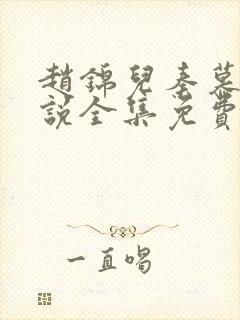 趙錦兒秦慕
說全集免費
一直唱